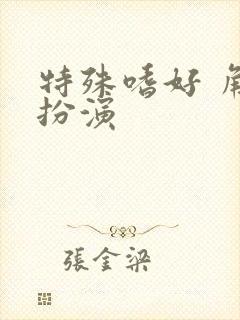 特殊嗜好 角
扮演
張金梁